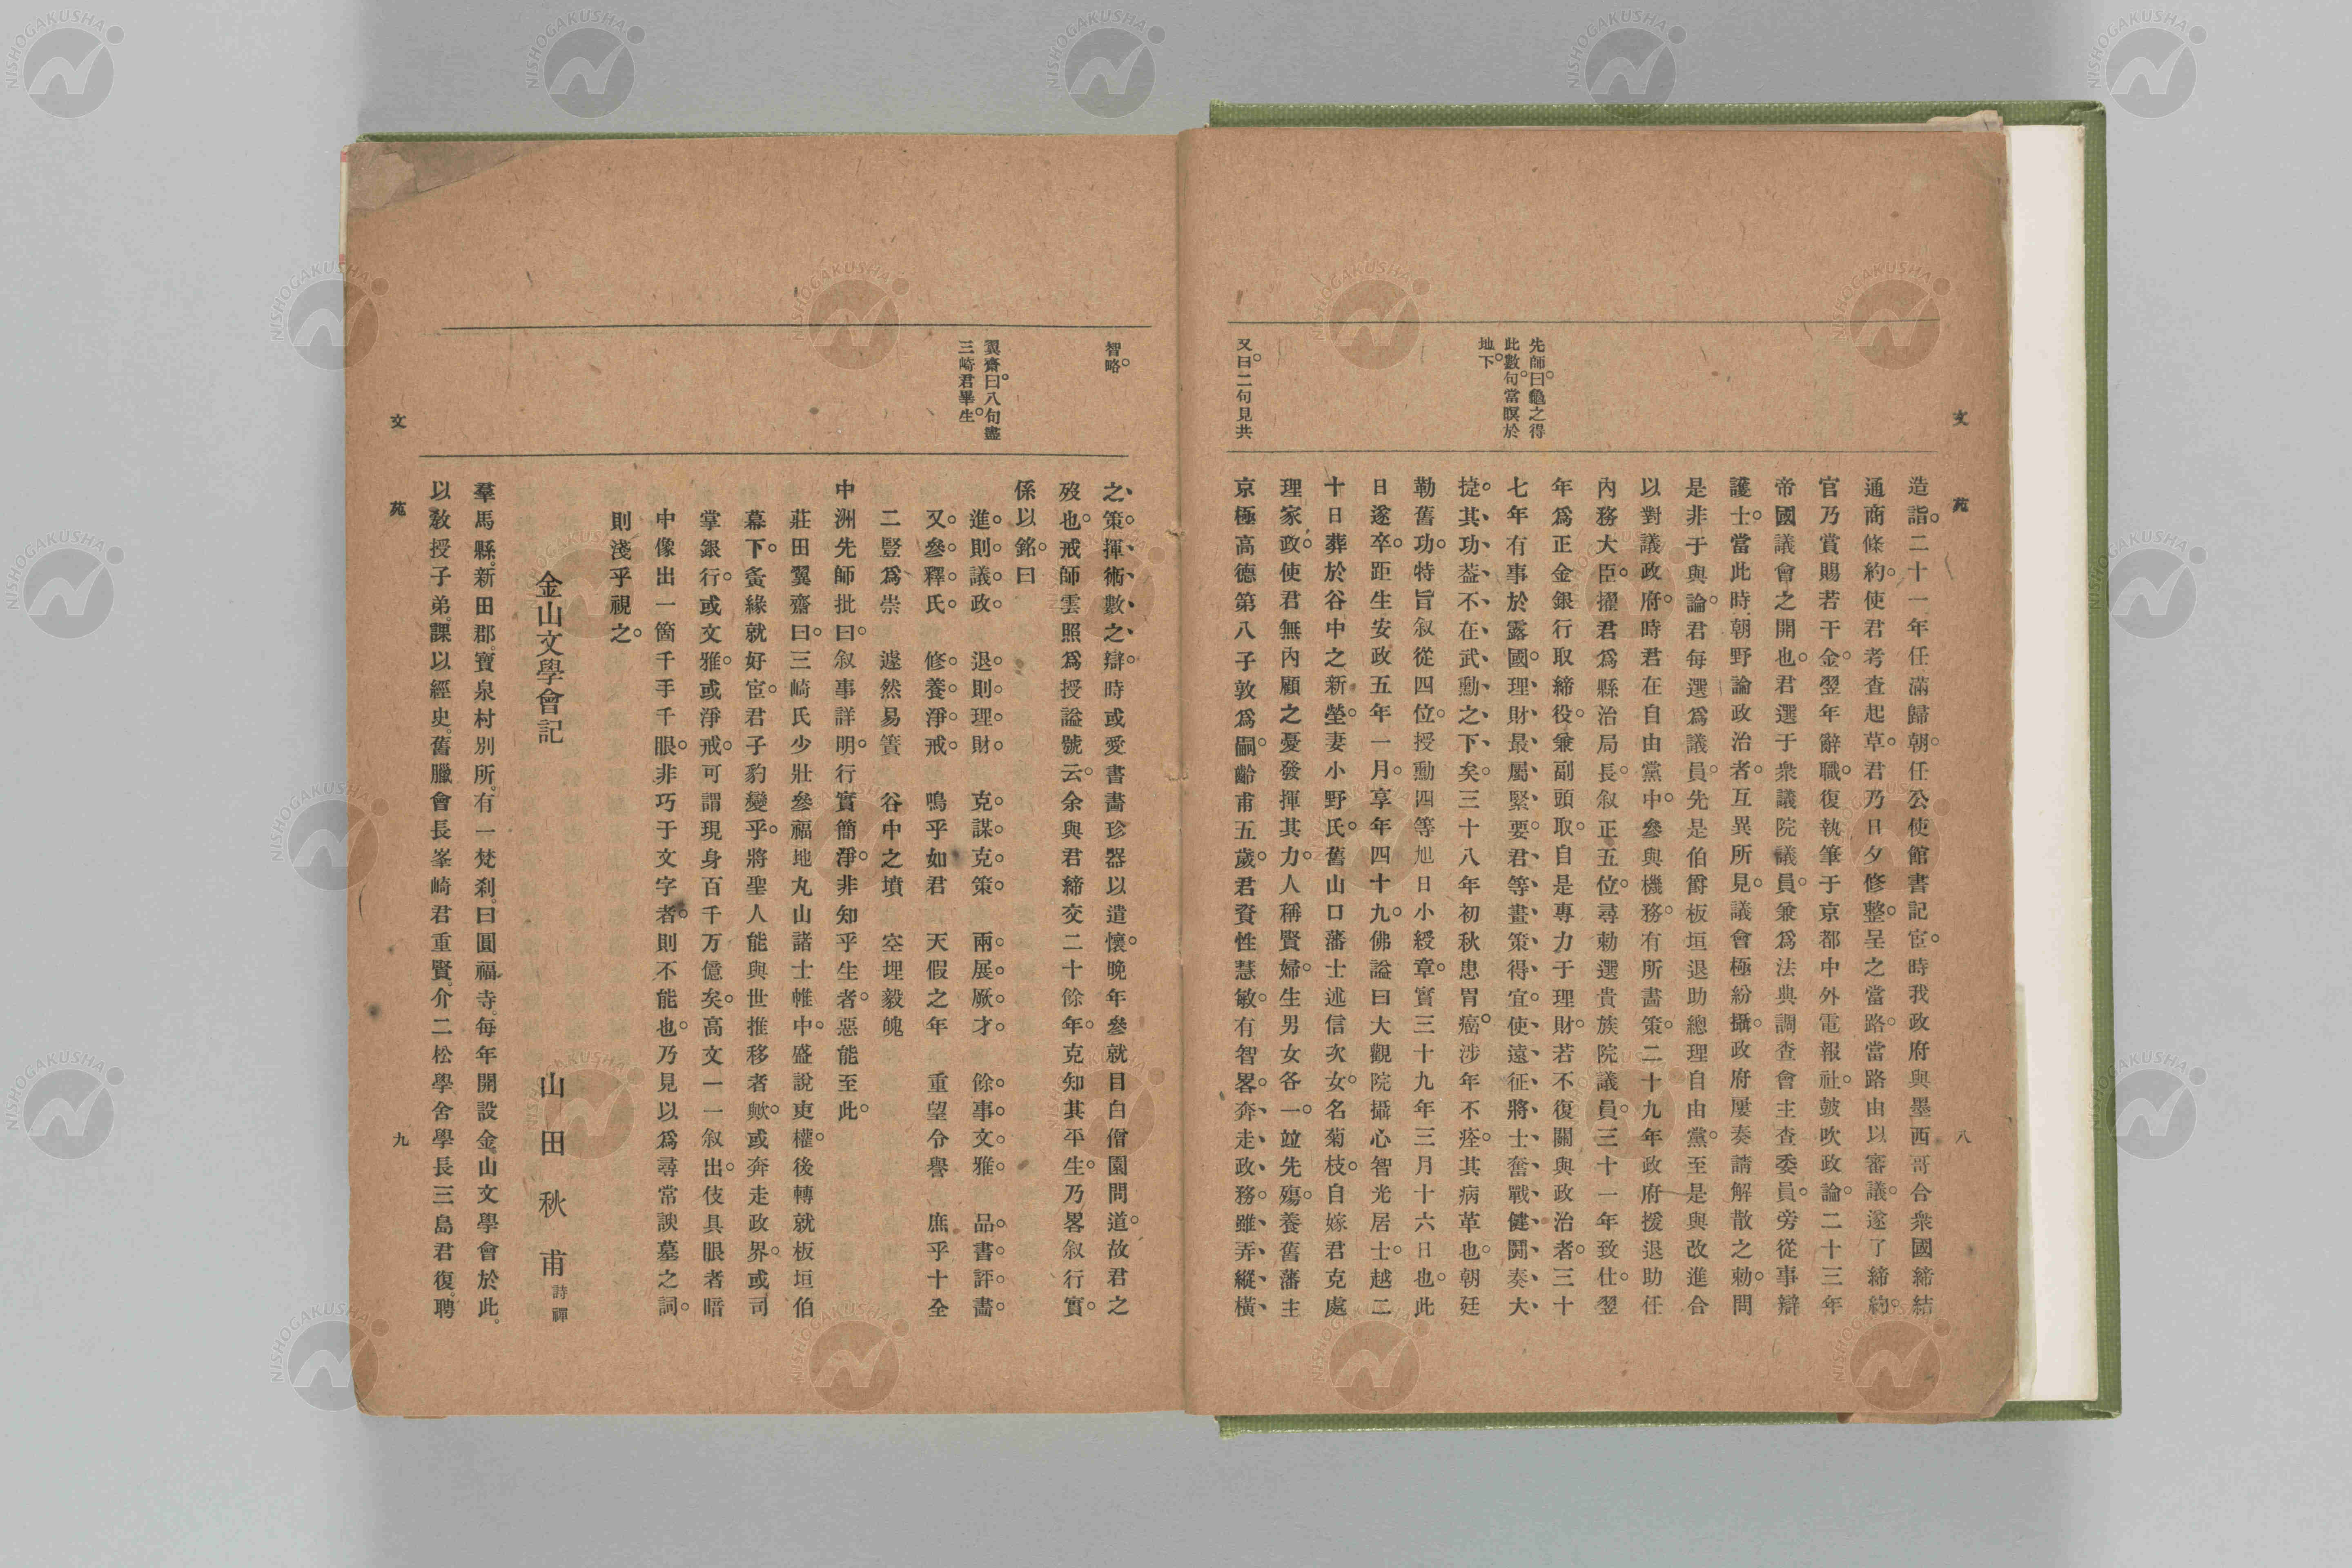 文苑
八
先師曰。龜之得
此數句。當瞑於
地下。
又曰。二句見共
造詣。二十一年任滿歸朝。任公使館書記宦。時我政府與墨西哥合衆國締結
通商條約。使君考査起草。君乃日夕修整。呈之當路。當路由以審議。遂了締約。
官乃賞賜若干金。翌年辭職。復執筆于京都中外電報社。皷吹政論。二十三年
帝國議會之開也。君選于衆議院議員。兼爲法典調査會主査委員。旁從事辯
護士。當此時。朝野論政治者。互異所見。議會極紛攝。政府屢奏請解散之勅。問
是非于與論。君每選爲議員。先是伯爵板垣退助總理自由黨。至是與改進合
以對議政府。時君在自由黨中。參與機務。有所畵策。二十九年政府援退助任
內務大臣。擢君爲縣治局長。叙正五位。尋勅選貴族院議員。三十一年致仕。翌
年爲正金銀行取締役。兼副頭取。自是專力于理財。若不復關與政治者。三十
七年有事於露國。理財最屬緊要。君等畫策得宜。使遠征將士奮戰健鬪奏大
捷。其功葢不在武勳之下矣。三十八年初秋患胃癌。涉年不痊。其病革也。朝廷
勒舊功。特旨叙從四位。授勳四等旭日小綬章。實三十九年三月十六日也。此
日遂卒。距生安政五年一月。享年四十九。佛謚曰大觀院攝心智光居士。越二
十日葬於谷中之新塋。妻小野氏。舊山口藩士述信次女。名菊枝。自嫁君克處
理家政。使君無內顧之憂發揮其力。人稱賢婦。生男女各一。竝先殤。養舊藩主
京極高德第八子敦爲嗣。齡甫五歲。君資性慧敏。有智畧。奔走政務。雖弄縱橫
智略。
翼齋曰。八句盡
三崎君畢生。
之策。揮術數之辯。時或愛書畵珍器以遣懷。晚年參就目白僧園問道。故君之
歿也。戒師雲照爲授謚號云。余與君締交二十餘年。克知其平生。乃畧叙行實。
係以銘。曰
進則議政。 退則理財。 克謀克策。 兩展厥才。 餘事文雅。 品書評畵。
又參釋氏。 修養淨戒。 鳴乎如君 天假之年 重望令譽 庶乎十全
二豎爲祟 遽然易簀 谷中之墳 空埋毅魄
中洲先師批曰。叙事詳明。行實簡淨。非知乎生者。惡能至此。
莊田翼齋曰。三崎氏少壯參福地丸山諸士帷中。盛說吏權。後轉就板垣伯
幕下。夤緣就好宦。君子豹變乎。將聖人能與世推移者歟。或奔走政界。或司
掌銀行。或文雅。或淨戒。可謂現身百千万億矣。高文一一叙出。伎具眼者暗
中像出一箇千手千眼。非巧于文字者。則不能也。乃見以爲尋常諛墓之詞。
則淺乎視之。
金山文學會記
山田秋甫 詩禪
羣馬縣。新田郡。寶泉村別所。有一梵刹。曰圓福寺。每年開設金山文學會於此。
以敎授子弟。課以經史。舊臘會長峯崎君重賢。介二松學舍學長三島君復。聘
文苑
九